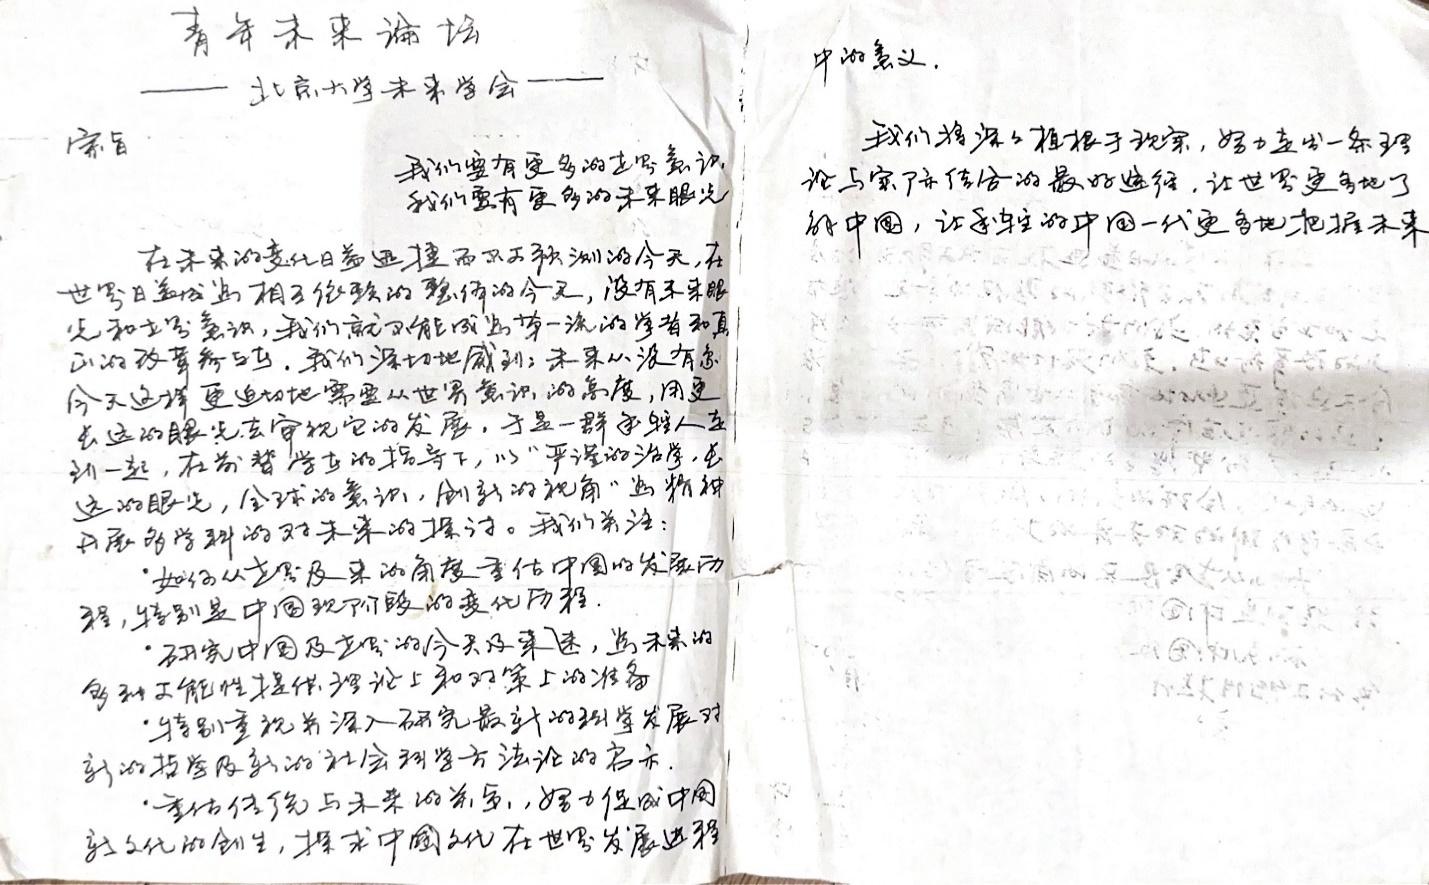 青年未来论坛
——北京大学未来学会——
宗旨
我们要有更多的世界意识
我们要有更多的未来眼光
在未来的变化日益迅捷而不可预测的今天,在
世界日益成为相互依赖的整体的今天,没有未来眼
光和世界意识,我们就不能成为第一流的学者和真
正的改革参与者。我们深切地感到:未来从没有象
今天这样更迫切地需要从世界意识的高度,用更
长远的眼光去审视它的发展。于是一群年轻人走
到一起,在前辈学者的指导下,以“严谨的治学,长
远的眼光,全球的意识,创新的视角”为精神
开展多学科的对未来的探讨。我们关注:
·如何从世界及未来的角度重估中国的发展历
程,特别是中国现阶段的变化历程.
·研究中国及世界的今天及未来,为未来的
多种可能性提供理论上和对策上的准备
·特别重视并深入研究最新的科学发展对
新的哲学及新的社会科学方法论的启示.
·重估传统与未来的关系,努力促成中国
新文化的创生,探求中国文化在世界发展进程
中的意义.
我们将深深植根于现实,努力走出一条理
论与实际结合的最好途径,让世界更多地了
解中国,让年轻的中国一代更多地把握未来